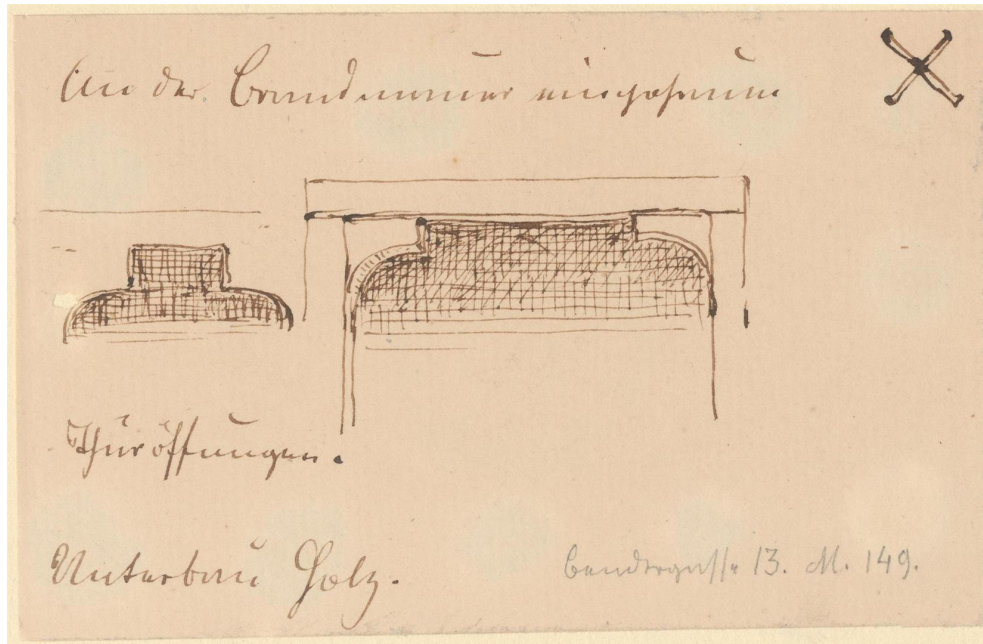 An der Brandmauer eingehauen
Thüröffungen.
Unterbau Holz.
Bendergasse 13. M. 149.